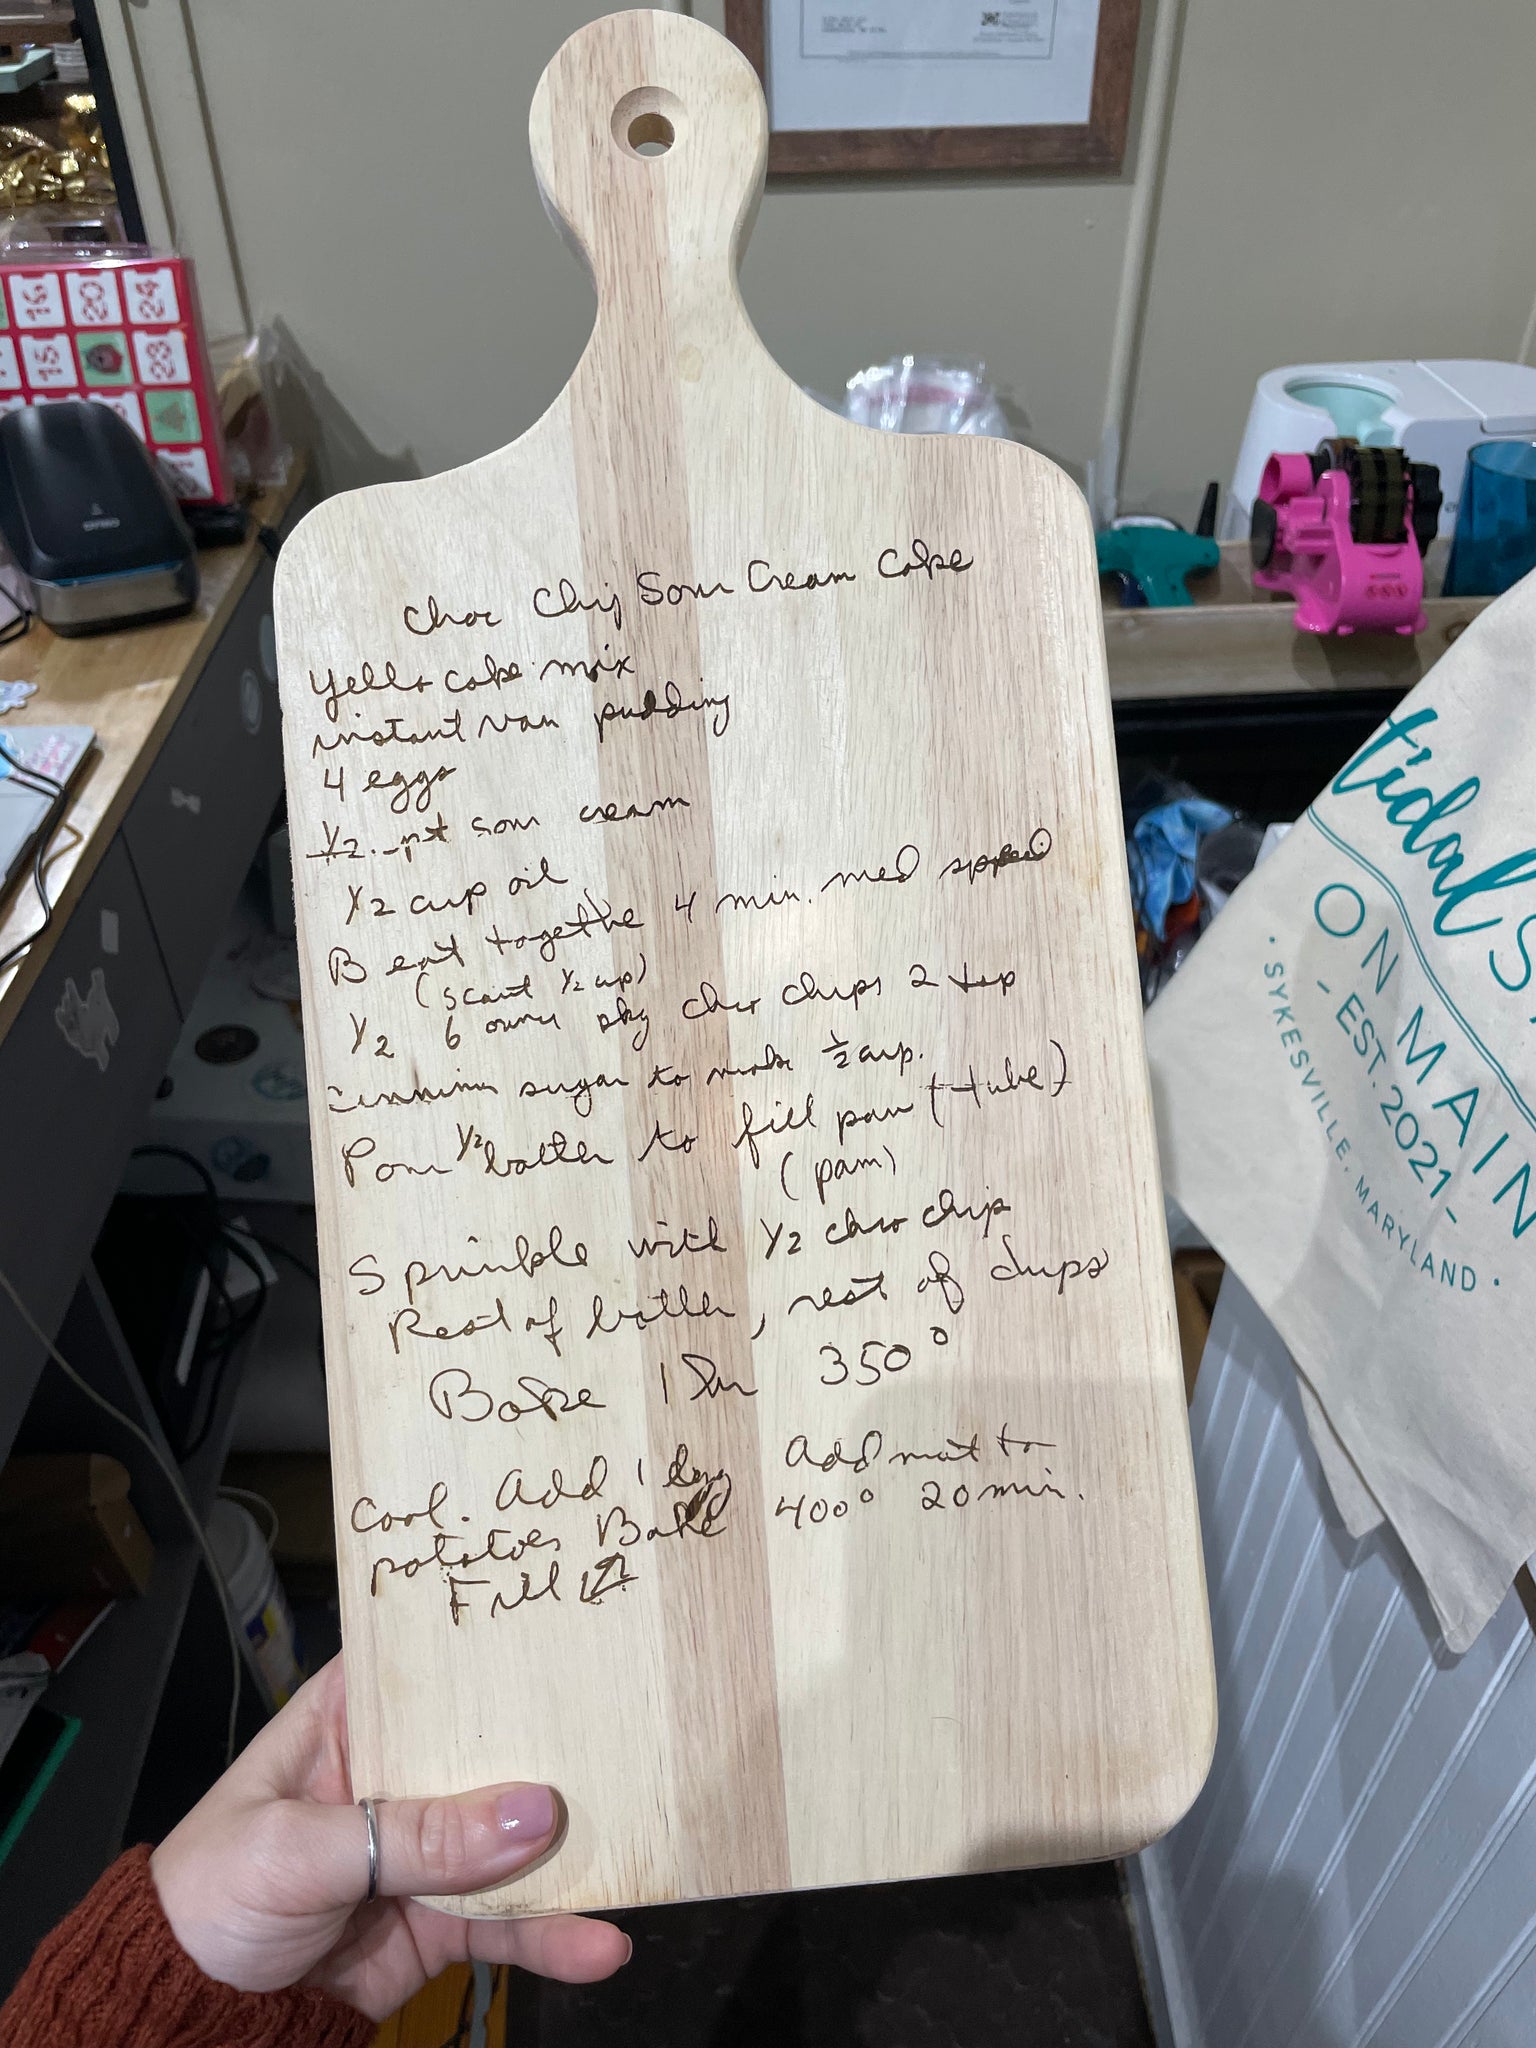 Choc Chip Sour Cream Cake
Yello cake mix
instant van pudding
4 eggs
1/2 pt sour cream
1/2 cup oil
Beat togethe 4 min. med speed
(scant 1/2 cup)
1/2 6 ounce pkg choc chips 2 tsp
Cinnimin sugar to make 1/2 cup.
Pour 1/2 batter to fill pan (tube)
(pam)
Sprinkle with 1/2 choc chip
Rest of batter, rest of chips
Bake 1 hr 350°
Cool. Add 1 egg Add to
potatoes Bake 400° 20 min.
Fill
16
20
24
15
23
DYMO
tidal
ON MAIN
- EST. 2021 -
· SYKESVILLE, MARYLAND ·